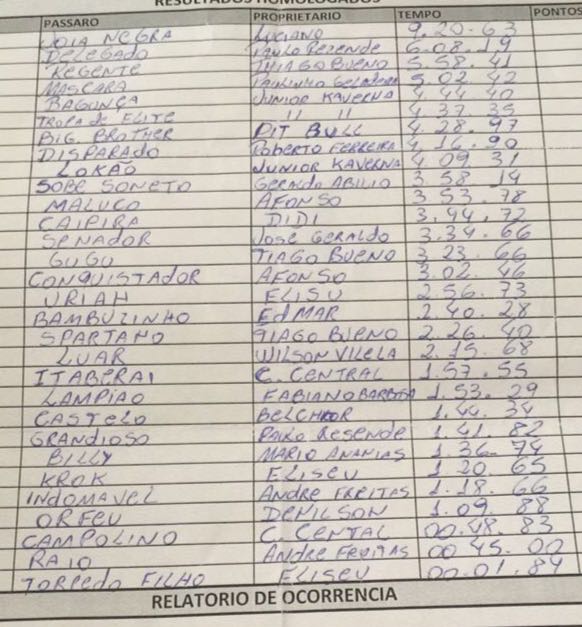 RESULTADOS HOMOLOGADOS
PASSARO PROPRIETARIO TEMPO PONTOS
JOIA NEGRA LUCIANO 9.20.63
DELEGADO Paulo Rezende 6.08.19
REGENTE THIAGO BUENO 5.58.41
MASCARA Paulinho Geladeira 5.02.42
BAGUNÇA JUNIOR KAVERNA 4.44.40
TROPA de ELITE 11 11 4.37.35
BIG BROTHER PIT BULL 4.28.97
DISPARADO Roberto FERREIRA 4.16.90
LOKÃO JUNIOR KAVERNA 4.09.31
SOBE SONETO GERALDO ABILIO 3.58.14
MALUCO AFONSO 3.53.78
CAIPIRA DIDI 3.44.72
SENADOR José GERALDO 3.34.66
GUGU TIAGO BUENO 3.23.66
CONQUISTADOR AFONSO 3.02.46
URIAH ELISU 2.56.73
BAMBUZINHO EDMAR 2.40.28
SPARTANO TIAGO BUENO 2.26.40
LUAR WILSON VILELA 2.15.68
ITABERAI C. CENTRAL 1.57.55
LAMPIÃO FABIANO BARBOSA 1.53.29
CASTELO BELCHIOR 1.44.34
GRANDIOSO Paulo Resende 1.41.82
BILLY MARIO ANANIAS 1.36.74
KROK ELISEU 1.20.65
INDOMAVEL ANDRE FREITAS 1.18.66
ORFEU DENILSON 1.09.88
CAMPOLINO C. CENTAL 00.48.83
RAIO Andre FREITAS 00.45.00
TORPEDO FILHO ELISEU 00.01.84
RELATORIO DE OCORRENCIA